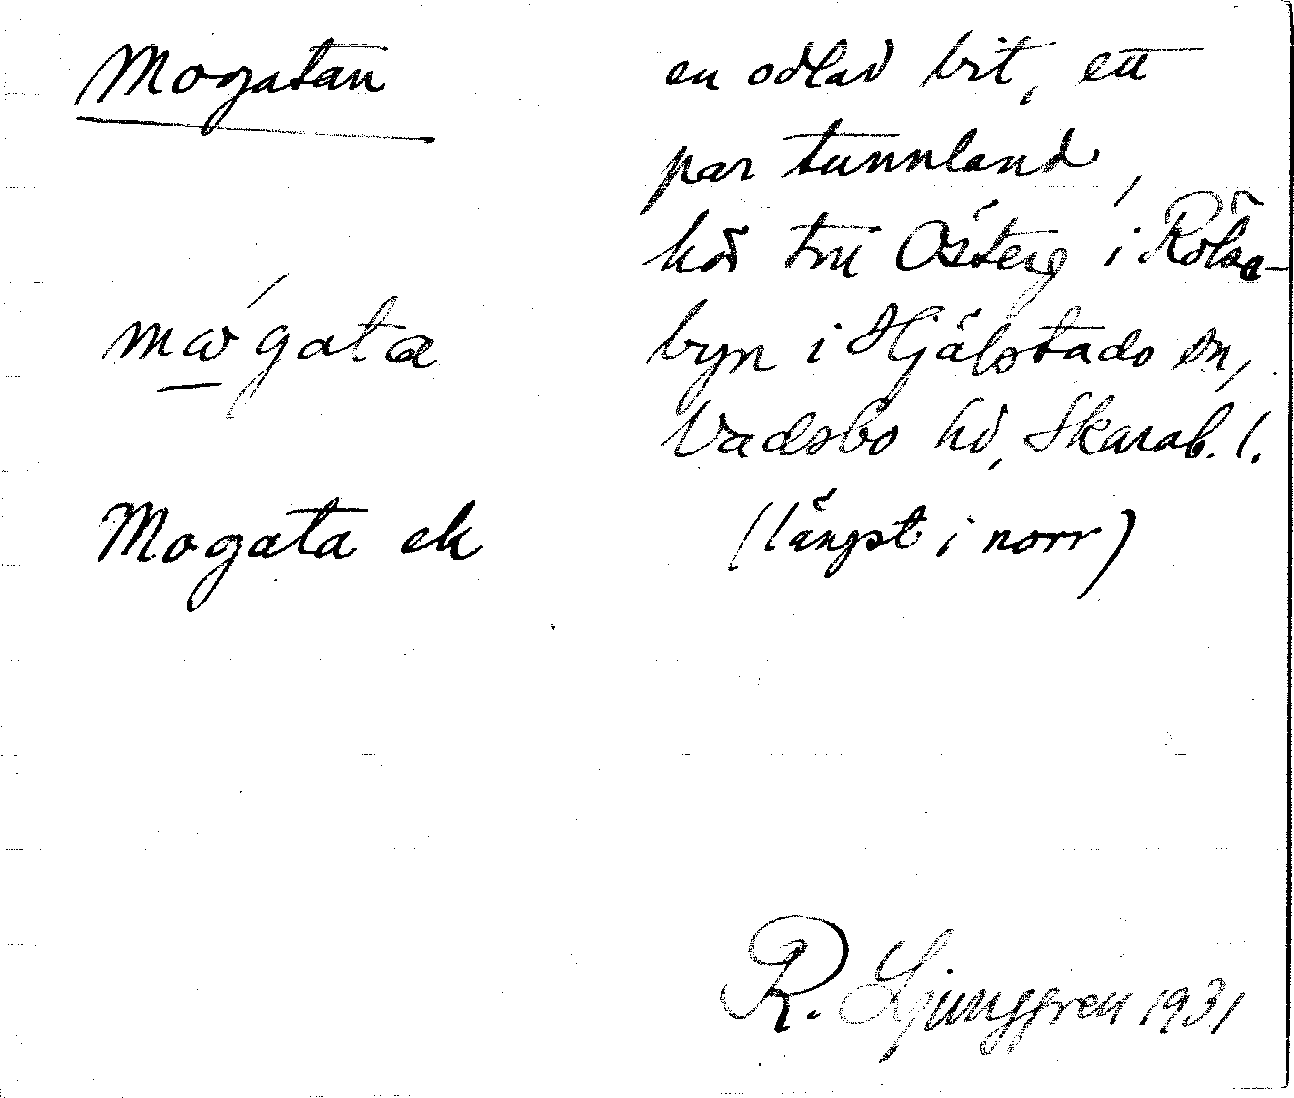 Mogatan
mágata
Mogata ek
en odlad bit, ett
par tunnland,
hör till Österg i Rölse-
byn i Hjälstads sn,
Vadsbo hd, Skarab. l.
(längst i norr)
R. Ljunggren 1931